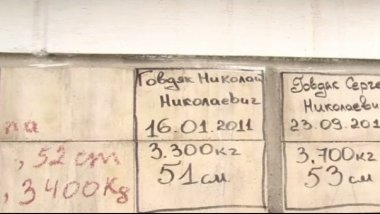 па
, 52 cm
, 3400Kg
Говдяк Николай
Николаевич
16.01.2011
3.300кг
51см
Говдяк Серге
Николаевич
23.09.201
3.700кг
53 см